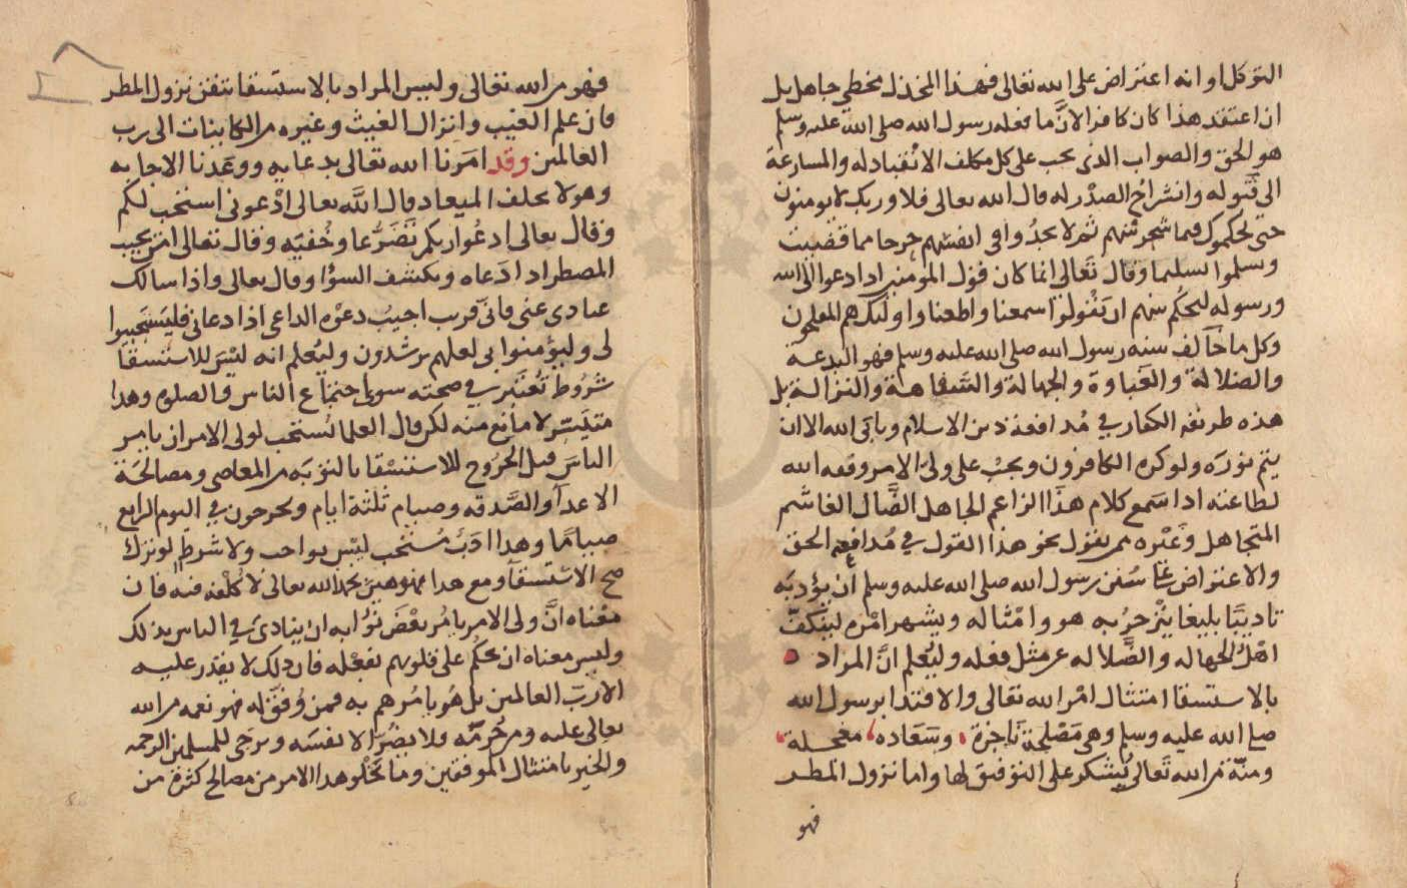 التوكل او انه اعتراض على الله تعالى فهذا المخذل مخطي جاهل بل
ان اعتقد هذا كان كافرا لانَّ ما فعله رسول الله صلى الله عليه وسلم
هو الحق والصواب الذى يجب على كل مكلف الانقياد له والمسارعة
الى قبوله وانشراح الصدر له قال الله تعالى فلا وربك لا يومنون
حتى يحكموك فيما شجر بينهم ثم لا يجدُوا فى انفسهم حرجا مما قضيت
وسلموا تسليما وقال تعالى انما كان قول المومنين اذا دعوا الى الله
ورسوله ليحكم بينهم ان يقولوا سمعنا واطعنا واوليك هم المفلحون
وكل ما خالف سنه رسول الله صلى الله عليه وسلم فهو البدعة
والضلالة والغباوة والجهالة والسفاهة والنزالة بل
هذه طريقه الكفار في مُدافعة دين الاسلام ويابى الله الا ان
يتم نوره ولو كره الكافرون ويجب على ولى الامر وفقه الله
لطاعته اذا سمع كلام هذا الزاعم الجاهل الضَّال الغاشم
المتجاهل وغيره ممن يقول نحو هذا القول في مُدافعة الحق
والاعتراض على سُنن رسول الله صلى الله عليه وسلم ان يؤدبَه
تاديبًا بليغا ينْزجرُ به هو وامْثاله ويشهر امْره لينكفَّ
اهْلُ الجهاله والضَّلاله عن مثل فعله وليُعلم انَّ المراد
بالاستسقا امتثال امْر الله تعالى والاقتدا برسول الله
صلى الله عليه وسلم وهى مَصْلحة ناجزة وسَعَاده معجلة
ومنّة من الله تَعالى يُشكر على التوفيق لها واما نزول المطر
فهو
فهو من الله تعالى وليس المراد بالاستسقا تيقن نزول المطر
فان علم الغيب وانزال الغيث وغيره من الكاينات الى رب
العالمين وقد امرَنا الله تعالى بدعايه ووعَدنا الاجابه
وهو لا يخلف الميعاد قال اللَّه تعالى ادْعونى استجب لكم
وقال تعالى ادعُوا ربكم تَضَرُّعا وخُفيَه وقال تعالى امن يجيب
المضطر اذا دَعاه ويكشف السؤ وقال تعالى واذا سالك
عبادى عنى فانى قريب اجيبُ دعْوه الداعى اذا دعانى فليَستجيبوا
لى وليؤمنوا بى لعلهم يرشدون وليُعلم انه ليْسَ للاستسقا
شُرُوط تُعْتبر في صحته سوى اجتماع الناس والصلوه وهذا
متيَسّر لا مانع منه لكن قال العلما يُستحب لولى الامر ان يامر
الناسَ قبل الخرُوج للاستسْقا بالتوبَه من المعاصى ومصالحَة
الاعدآ والصَّدقه وصيام ثلثة ايام ويخرجون في اليوم الرابع
صيامًا وهذا ادَبٌ مُستحب ليْس بواجب ولا شرط لو ترك
صح الاستسقآ ومع هذا فهو هيّن بحمد الله تعالى لا كُلْفه فيه فان
معْناه انَّ ولى الامر يامُر بعْضَ نوُّابه ان يُنادى في الناس بذلك
وليس معناه ان يحكُم على قلوبهم بفعْله فان ذلك لا يقدر عليه
الا رب العالمين بل هُو يامُرهم به فمن وُفقَ له فهو نعمه من الله
تعالى عليه ومن حُرمَه فلا يضُرّ الا نفسَه ويرجى للمسلمين الرحمه
والخير بامتثال الموفقين وما يخْلو هذا الامر من مصالح كثيرة من